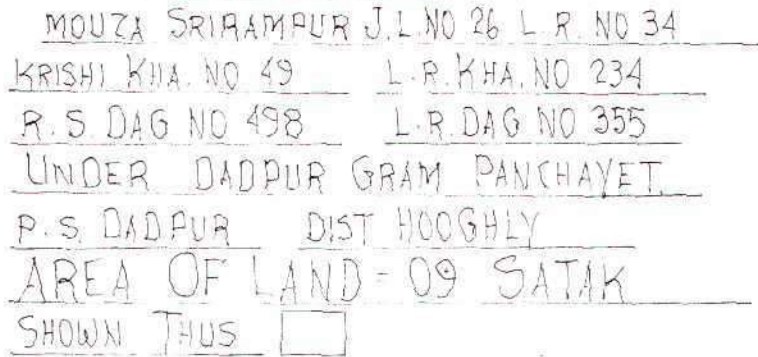 MOUZA SRIRAMPUR J.L.NO 26 L.R. NO 34
KRISHI KHA. NO 49 L.R.KHA. NO 234
R.S. DAG NO 498 L.R.DAG NO 355
UNDER DADPUR GRAM PANCHAYET
P.S. DADPUR DIST HOOGHLY
AREA OF LAND = 09 SATAK
SHOWN THUS